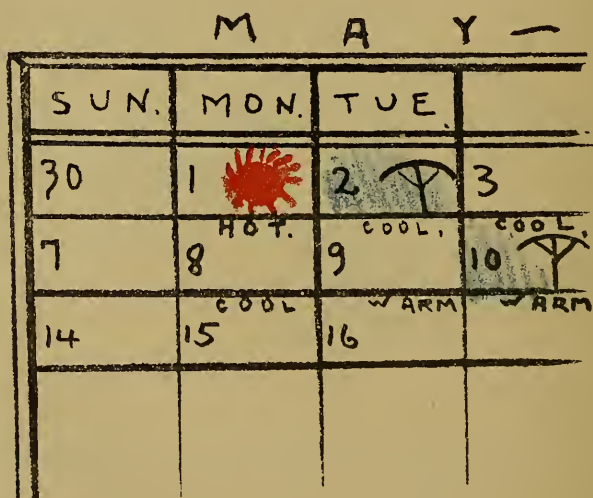 MAY—
SUN. MON. TUE.
30 1 2 3
HOT. COOL, COOL,
7 8 9 10
COOL WARM WARM
14 15 16